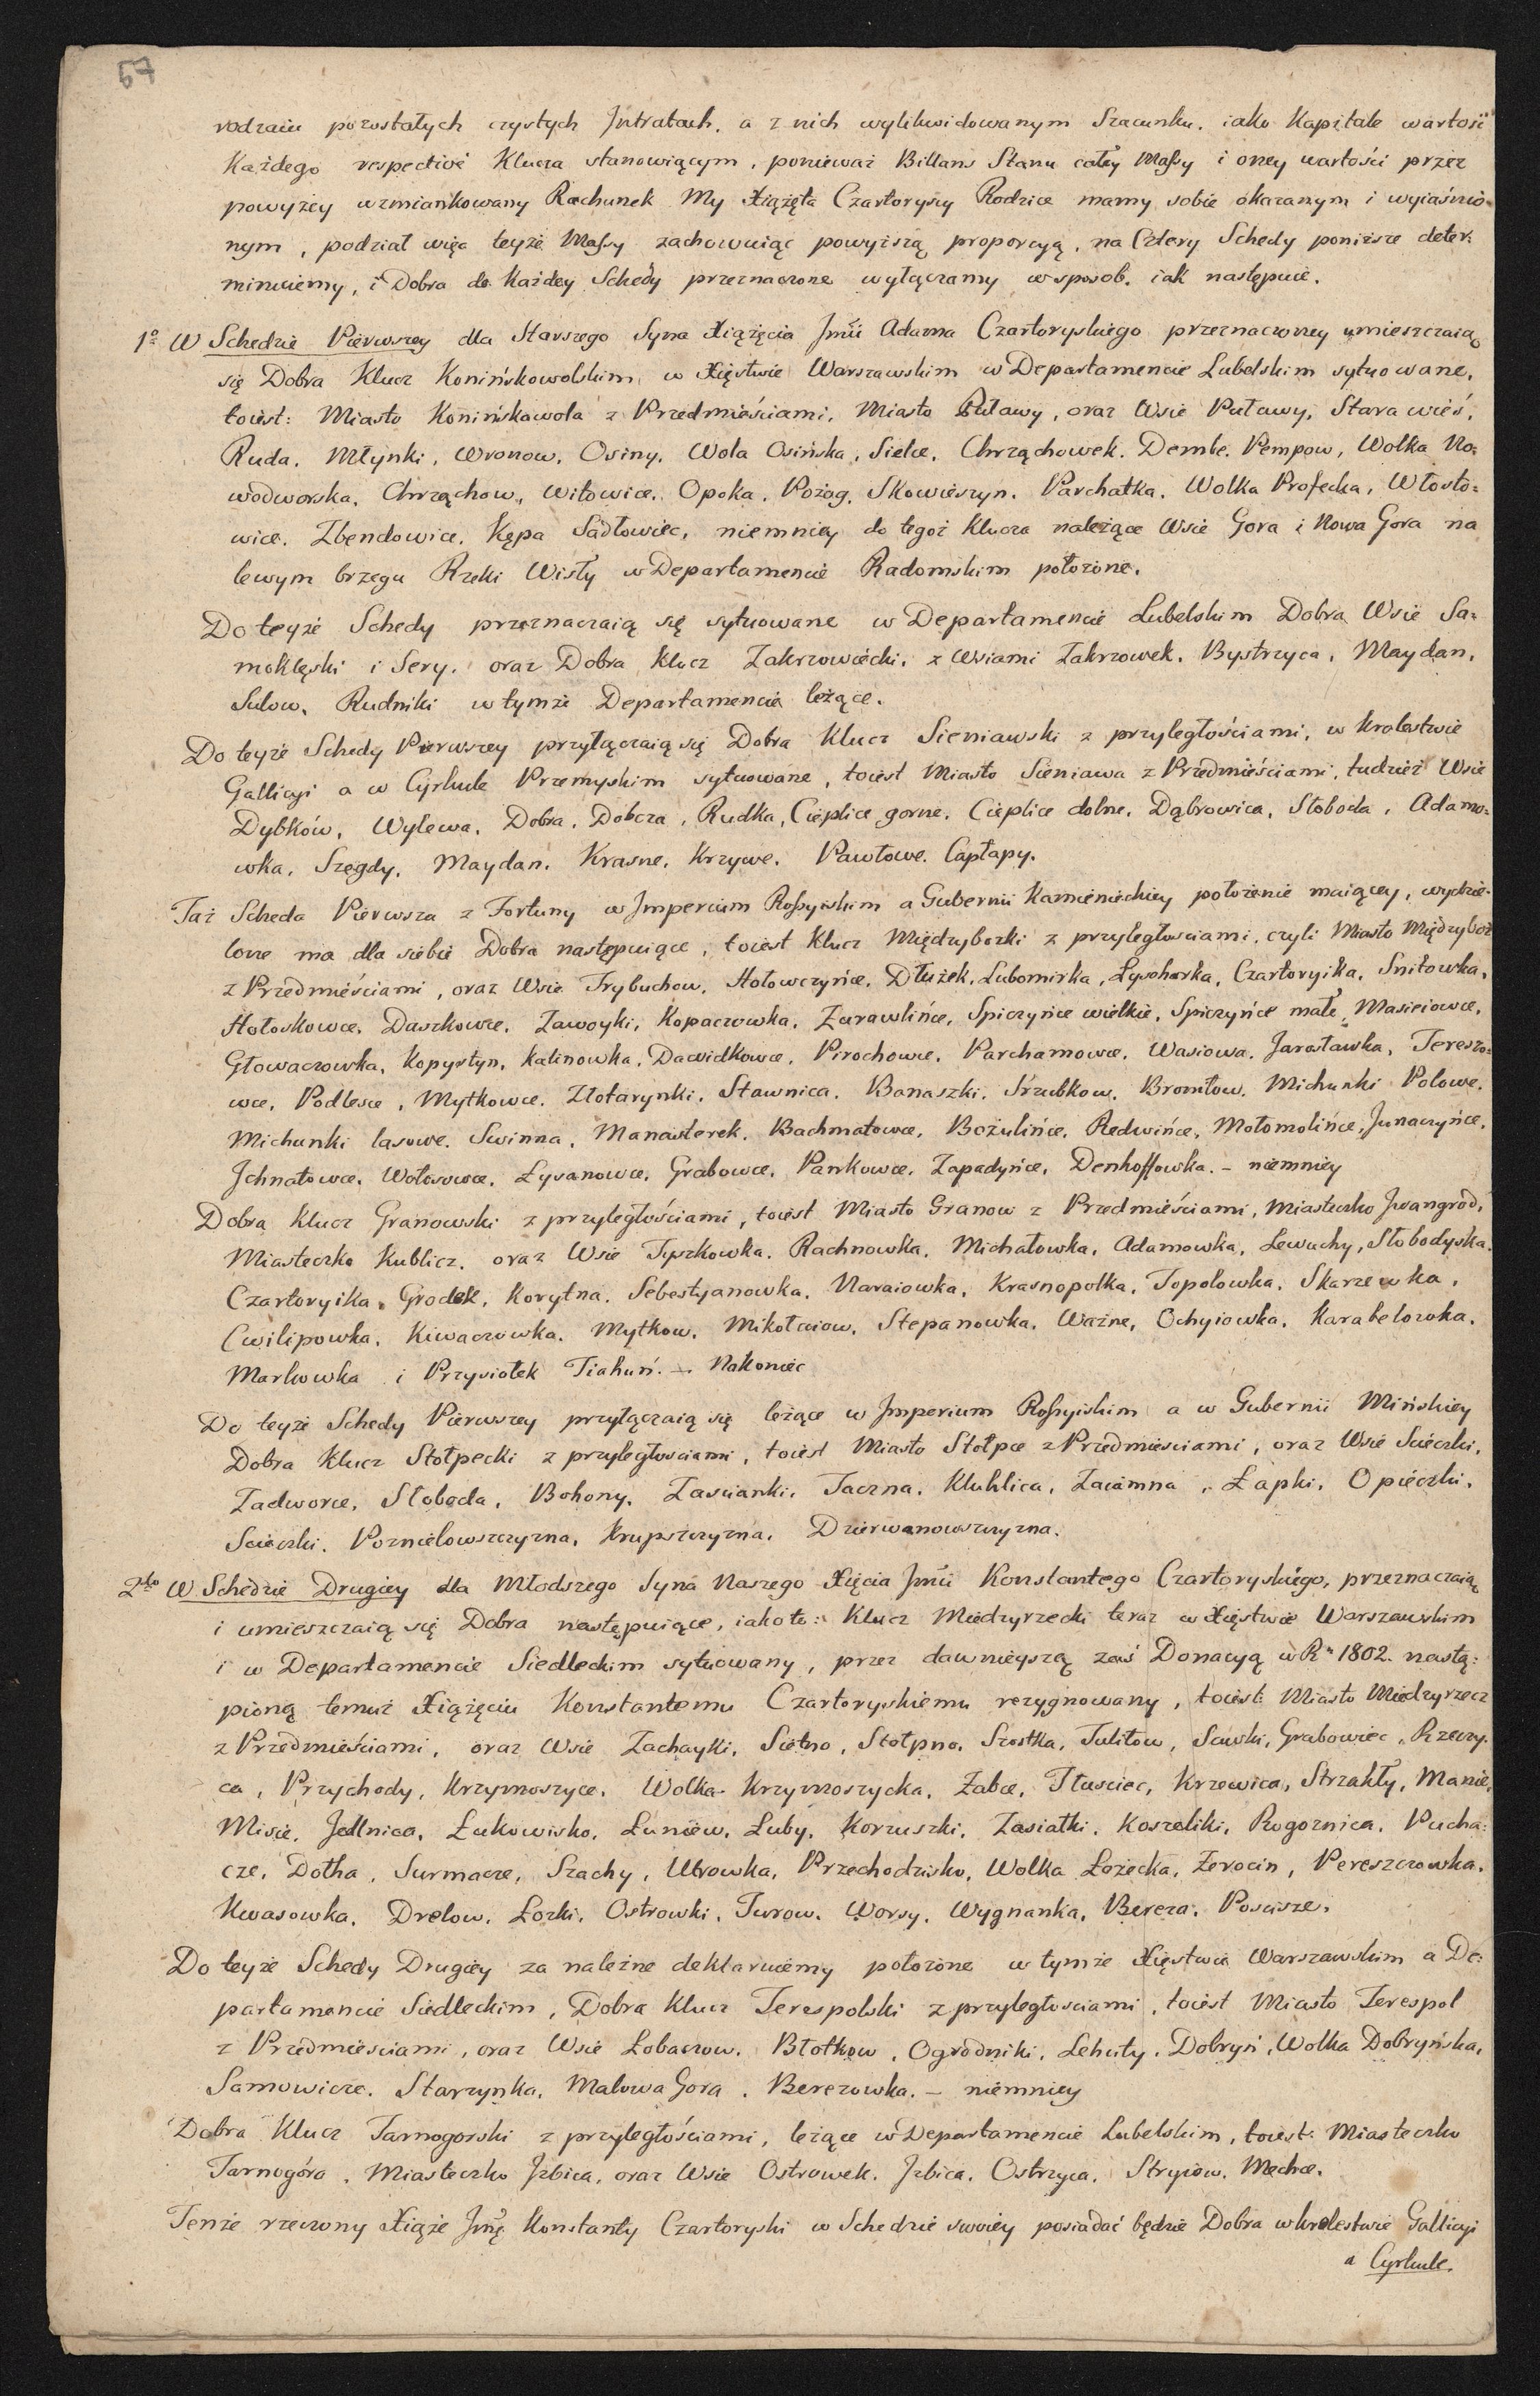 57
rodzaiu pozostałych czystych Intratach, a z nich wylikwidowanym Szacunku, iako Kapitale wartość
Każdego respective Klucza stanowiącym, ponieważ Billans Stanu całey Massy i oney wartości przez
powyżey wzmiankowany Rachunek My Xiążęta Czartoryscy Rodzice mamy sobie okazanym i wyiaśnio-
nym, podział więc teyże Massy zachowuiąc powyższą proporcyą, na Cztery Schedy poniższe deter:
minuiemy, i Dobra do Każdey Schedy przeznaczone wyłączamy w sposob, iak następuie.
1o W Schedzie Pierwszey dla Starszego Syna Xiążęcia Jmci Adama Czartoryskiego przeznaczoney umieszczaią
się Dobra Klucz Konińskowolskim, w Xięstwie Warszawskim w Departamencie Lubelskim sytuowane,
toiest: Miasto Konińskawola z Przedmieściami, Miasto Puławy, oraz Wsie Puławy, Stara wieś,
Ruda, Młynki, Wronow, Osiny, Wola Osińska, Sielce, Chrząchowek, Dembe, Pempow, Wolka No:
wodworska, Chrząchow, Witowice, Opoka, Pożog, Skowieszyn, Parchatka, Wolka Profecka, Włosto=
wice, Zbendowice, Kępa Sadłowiec, niemniey do tegoż Klucza należące Wsie Gora i Nowa Gora na
lewym brzegu Rzeki Wisły w Departamencie Radomskim położone.
Do teyże Schedy przeznaczaią się sytuowane w Departamencie Lubelskim Dobra Wsie Sa=
moklęski i Sery, oraz Dobra Klucz Zakrzowiecki, z Wsiami Zakrzowek, Bystrzyca, Maydan,
Sulow, Rudniki w tymże Departamencie leżące.
Do teyże Schedy Pierwszey przyłączaią się Dobra Klucz Sieniawski z przyległościami, w Krolestwie
Gallicyi a w Cyrkule Przemyskim sytuowane, toiest Miasto Sieniawa z Przedmieściami, tudzież Wsie
Dybków, Wylewa, Dobra, Dobcza, Rudka, Cieplice gorne, Cieplice dolne, Dąbrowica, Słoboda, Adamo=
wka, Szegdy, Maydan, Krasne, Krzywe, Pawłowe, Capłapy.
Taż Scheda Pierwsza z Fortuny w Imperium Rossyiskim a Gubernii Kamienieckiey położenie maiącey, wydzie-
lone ma dla siebie Dobra następuiące, toiest Klucz Międzyborki z przyległosciami, czyli Miasto Międzyboż
z Przedmieściami, oraz Wsie Trybuchow, Hołowczyńce, Dłużek, Lubomirka, Łysohorka, Czartoryika, Snitowka,
Hołoskowce, Daszkowce, Zawoyki, Kopaczowka, Zurawlińce, Spiczyńce wielkie, Spiczyńce małe, Masieiowce,
Głowaczowka, Kopystyn, Kalinowka, Dawidkowce, Pirochowce, Parchamowce, Wasiowa, Jarosławka, Tereszo:
wce, Podlesce, Mytkowce, Złotarynki, Stawnica, Banaszki, Srzubkow, Bromłow, Michunki Polowe,
Michunki lasowe, Swinna, Manasterek, Bachmatowce, Bożulińce, Redwińce, Mołomolińce, Junaczyńce,
Ichnatowce, Wołosowce, Łysanowce, Grabowce, Pankowce, Zapadyńce, Denhoffowka. – niemniey
Dobra Klucz Granowski z przyległościami, toiest Miasto Granow z Przedmieściami, Miasteczko Iwangrod,
Miasteczko Kublicz, oraz Wsie Tyszkowka, Rachnowka, Michałowka, Adamowka, Lewachy, Słobodyska,
Czartoryika, Grodek, Korytna, Sebestyanowka, Naraiowka, Krasnopolka, Topolowka, Skarzewka,
Cwilipowka, Kiwaczowka, Mytkow, Mikołaiow, Stepanowka, Ważne, Ochyiowka, Karabelowka,
Markowka i Przysiołek Tiahuń. – Nakoniec
Do teyże Schedy Pierwszey przyłączaią się leżące w Imperium Rossyiskim a w Gubernii Mińskiey
Dobra Klucz Stołpecki z przyległosciami, toiest Miasto Stołpce z Przedmiesciami, oraz Wsie Scieczki,
Zadworce, Słoboda, Bohony, Zascianki, Taczna, Kluhlica, Zaciamna, Łapki, Opieczki,
Scieczki, Poznielowszczyzna, Krupszczyzna, Dzierwanowszczyzna.
2do W Schedzie Drugiey dla Młodszego Syna Naszego Xięcia Jmci Konstantego Czartoryskiego, przeznaczaią
i umieszczaią się Dobra następuiące, iakoto: Klucz Miedzyrzecki teraz w Xięstwie Warszawskim
i w Departamencie Siedleckim sytuowany, przez dawnieyszą zaś Donacyą w Ru 1802. nastą:
pioną temuż Xiążęciu Konstantemu Czartoryskiemu rezygnowany, toiest: Miasto Miedzyrzecz
z Przedmieściami, oraz Wsie Zachayki, Sietno, Stołpno, Szostka, Tulitow, Sawki, Grabowiec, Rzeczy-
ca, Przychody, Krzymoszyce, Wolka Krzymoszycka, Zabce, Tłusciec, Krzewica, Strzakły, Manie,
Misie, Jelnica, Łukowisko, Łuniew, Luby, Korzuszki, Zasiatki, Koszeliki, Rogoznica, Pucha:
cze, Dotha, Surmacze, Szachy, Utrowka, Przechodzisko, Wolka Łożecka, Zerocin, Pereszczowka,
Kwasowka, Drelow, Łozki, Ostrowki, Turow, Worsy, Wygnanka, Bereza, Poscisze.
Do teyże Schedy Drugiey za należne deklaruiemy położone w tymże Xięstwie Warszawskim a De:
partamencie Siedleckim, Dobra Klucz Terespolski z przyległosciami, toiest Miasto Terespol
z Przedmieściami, oraz Wsie Łobaczow, Błotkow, Ogrodniki, Lehuty, Dobryń, Wolka Dobryńska,
Samowicze, Starzynka, Malowa Gora, Berezowka. – niemniey
Dobra Klucz Tarnogorski z przyległościami, leżące w Departamencie Lubelskim, toiest: Miasteczko
Tarnogóra, Miasteczko Izbica, oraz Wsie Ostrowek, Izbica, Ostrzyca, Stryiow, Mechce.
Tenże rzeczony Xiąże Jmć Konstanty Czartoryski w Schedzie swoiey posiadać będzie Dobra w krolestwie Gallicyi
a Cyrkule.